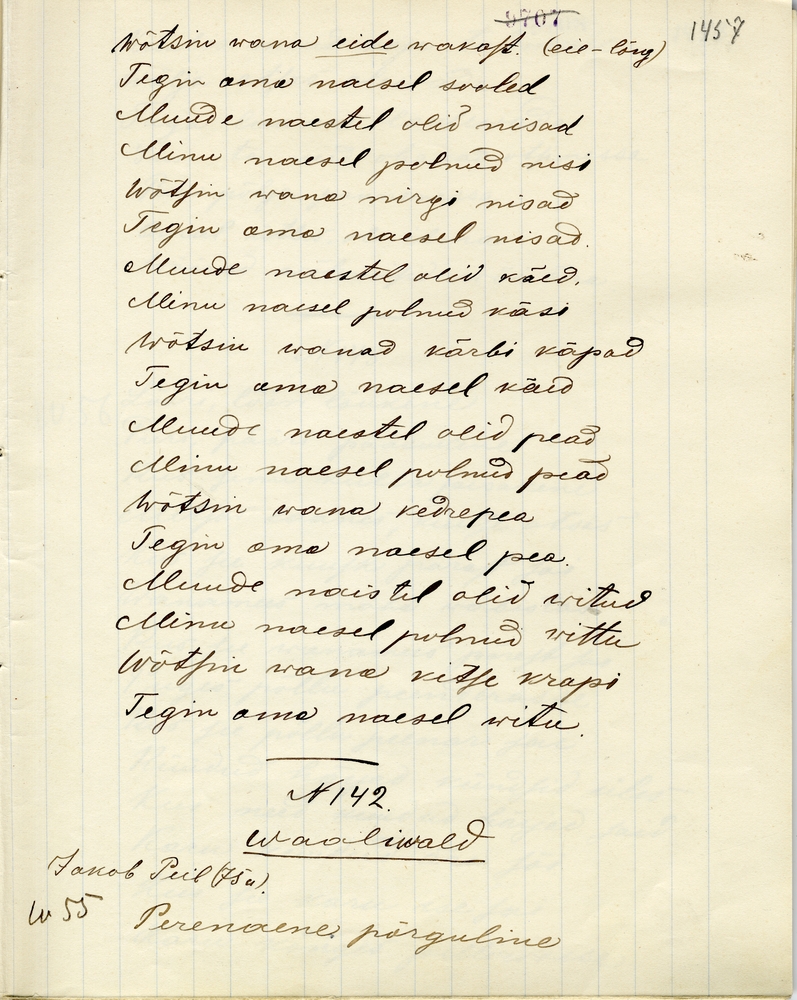 9707
1457
Wõtsin wana eide wakast. (eie-lõng)
Tegin oma naesel sooled
Muude naestel olid nisad
Minu naesel polnud nisi
Wõtsin wana nirgi nisad
Tegin oma naesel nisad.
Muude naestel olid käed.
Minu naesel polnud käsi
Wõtsin wanad kärbi käpad
Tegin oma naesel käed
Muude naestel olid pead
Minu naesel polnud pead
Wõtsin wana kedrepea
Tegin oma naesel pea.
Muude naistel olid witud
Minu naesel polnud wittu
Wõtsin wana kitse krapi
Tegin oma naesel witu.
N 142.
Waaliwald
Jakob Peil (75 a).
55
Perenaene põrguline